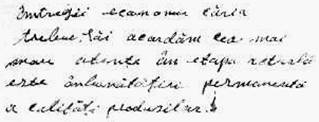 întregii economii căreia
trebue să-i acordăm cea mai
mare atenție în etapa actuală
este îmbunătățirea permanentă
a calității produselor.